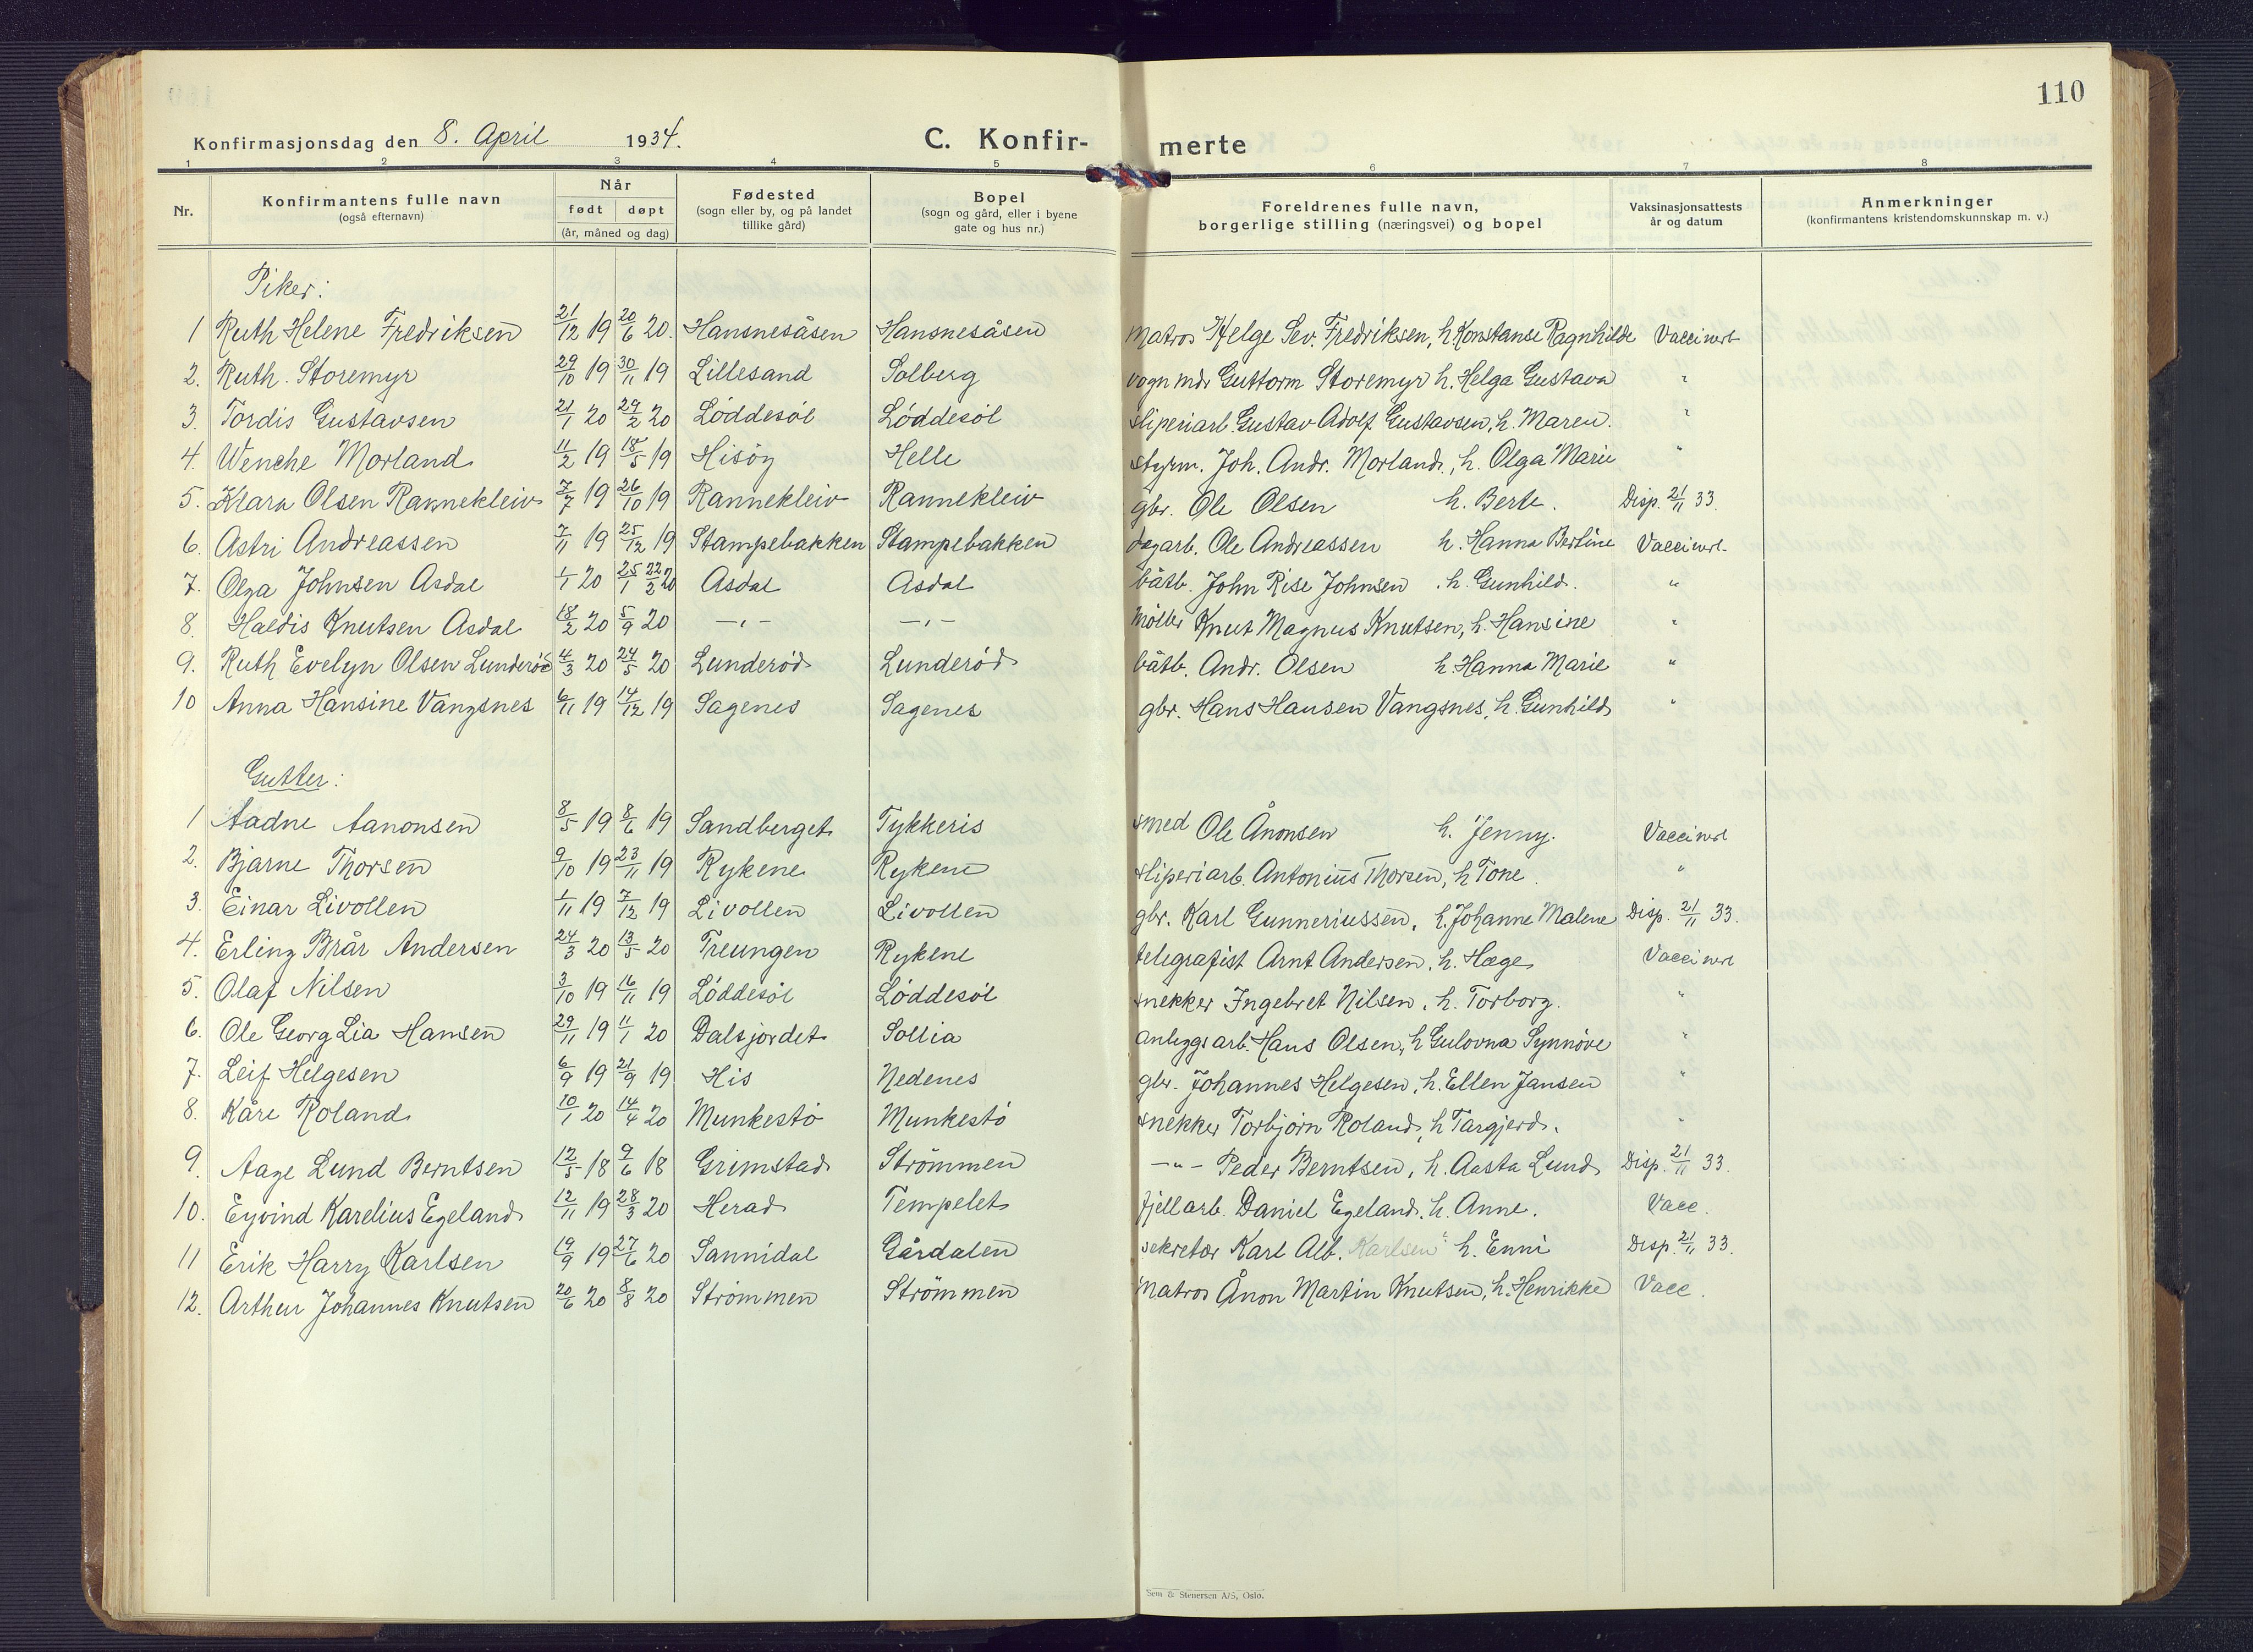 110
Konfirmasjonsdag den 8. April 1934. C. Konfir- merte
1 2 3 4 5 6 7 8
Nr. Konfirmantens fulle navn (også efternavn) Når født døpt (år, måned og dag) Fødested (sogn eller by, og på landet tillike gård) Bopel (sogn og gård, eller i byene gate og hus nr.) Foreldrenes fulle navn, borgerlige stilling (næringsvei) og bopel Vaksinasjonsattests år og datum Anmerkninger (konfirmantens kristendomskunnskap m. v.)
Piker:
1 Ruth Helene Fredriksen 21/12 19 20/6 20. Hansnesåsen Hansnesåsen Matros Helge Sev. Fredriksen, h. Konstanse Ragnhilde Vaccinert
2. Ruth Storemyr 29/10 19 30/11 19 Lillesand Solberg vognmdr Guttorm Storemyr h. Helga Gustava "
3. Tordis Gustavsen 21/1 20 29/2 20 Løddesøl Løddesøl sliperiarb. Gustav Adolf Gustavsen, h. Maren. "
4. Wenche Morland 11/2 19 18/5 19 Hisöy Helle styrm. Joh. Andr. Morland, h. Olga Marie "
5. Klara Olsen Rannekleiv 7/7 19 26/10 19 Rannekleiv Rannekleiv gbr. Ole Olsen h. Berte. Disp. 21/11 33.
6. Astri Andreassen 7/11 19 25/12 19 Stampebakken Stampebakken dagarb. Ole Andreassen h. Hanna Bertine Vaccinert.
7. Olga Johnsen Asdal 1/1 20 25/1 22/2 20 Asdal Asdal båtb. John Rise Johnsen h. Gunhild. "
8. Haldis Knutsen Asdal 18/2 20 5/9 20 —„— —„— Möller Knut Magnus Knutsen, h. Hansine "
9. Ruth Evelyn Olsen Lunderød 4/3 20 24/5 20 Lunderød Lunderød båtb. Andr. Olsen h. Hanna Marie "
10 Anna Hansine Vangsnes 6/11 19 14/12 19 Sagenes Sagenes gbr. Hans Hansen Vangsnes, h. Gunhild "
Gutter:
1 Aadne Aanonsen 8/5 19 8/6 19 Sandberget Tykkeris smed Ole Ånonsen h. Jenny. Vaccinert
2. Bjarne Thorsen 9/10 19 23/11 19 Rykene Rykene sliperiarb. Antonius Thorsen, h Tone. "
3. Einar Livollen 1/11 19 7/12 19 Livollen Livollen gbr. Karl Gunneriussen, h. Johanne Malene Disp. 21/11 33.
4. Erling Brår Andersen 24/3 20 13/5 20 Treungen Rykene telegrafist Arnt Andersen, h. Hæge Vaccinert
5. Olaf Nilsen 3/10 19 16/11 19 Løddesøl Løddesøl snekker Ingebret Nilsen, h. Torborg. "
6. Ole Georg Lia Hansen 29/11 19 11/1 20 Dalsjordet Sollia anleggsarb. Hans Olsen, h Gulovna Synnöve "
7. Leif Helgesen 6/9 19 21/9 19 His Nedenes gbr. Johannes Helgesen, h. Ellen Jansen "
8. Kåre Roland 10/1 20 14/4 20 Munkestö Munkestö snekker Torbjörn Roland, h Targjerd. "
9. Aage Lund Berntsen 12/5 18 9/6 18 Grimstad Strömmen —"— Peder Berntsen, h. Aasta Lund Disp. 21/11 33.
10. Eyvind Karelius Egeland 12/11 19 28/3 20 Herad Tempelet fjellarb. Daniel Egeland, h. Anne. Vacc.
11 Erik Harry Karlsen 19/9 19 27/6 20 Sannidal Gårdalen sekretær Karl Alb. Karlsen h. Enni Disp. 21/11 33.
12. Arthur Johannes Knutsen 20/6 20 8/8 20 Strömmen Strömmen Matros Ånon Martin Knutsen, h. Henrikke Vacc.
Sem & Stenersen A/S, Oslo.